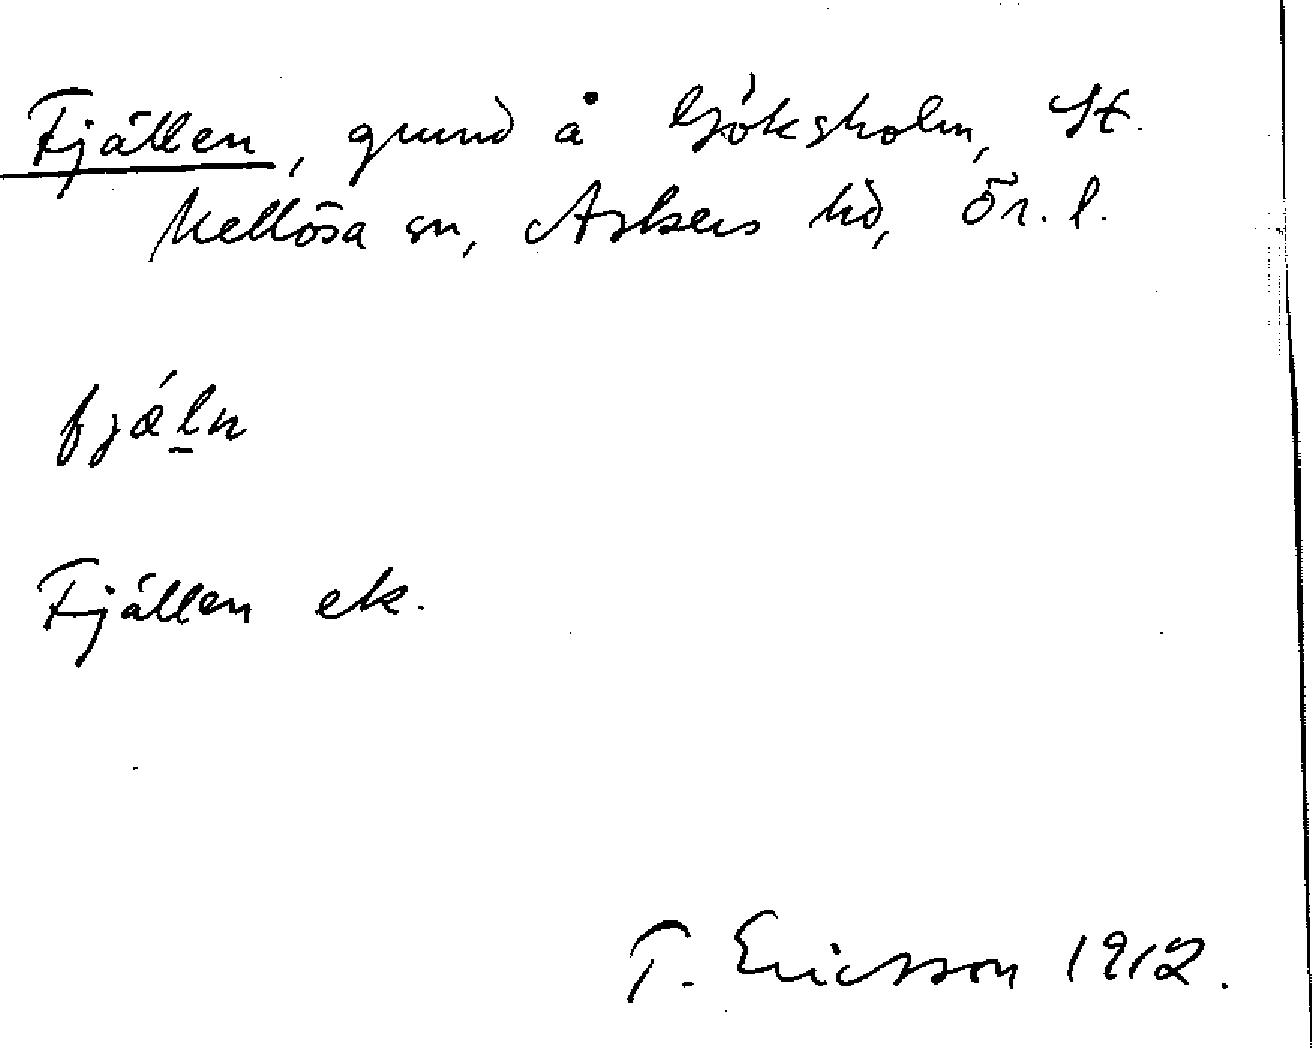 Fjällen, grund å Göksholm, St.
Mellösa sn, Askers hd, Ör. l.
fjä́ln
Fjällen ek.
T. Ericsson 1912.